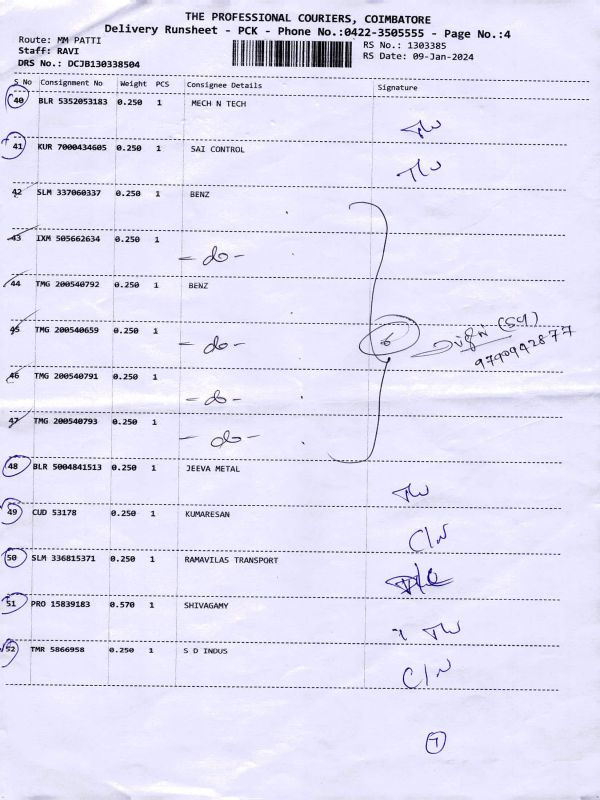 THE PROFESSIONAL COURIERS, COIMBATORE
Delivery Runsheet - PCK - Phone No.:0422-3505555 - Page No.:4
Route: MM PATTI
Staff: RAVI
DRS No.: DCJB130338504
RS No.: 1303385
RS Date: 09-Jan-2024
S No Consignment No Weight PCS Consignee Details Signature
40 BLR 5352053183 0.250 1 MECH N TECH
41 KUR 7000434605 0.250 1 SAI CONTROL
42 SLM 337060337 0.250 1 BENZ
43 IXM 505662634 0.250 1 - do -
44 TMG 200540792 0.250 1 BENZ
45 TMG 200540659 0.250 1 - do -
6
(SG)
9790942877
46 TMG 200540791 0.250 1 - do -
47 TMG 200540793 0.250 1 - do -
48 BLR 5004841513 0.250 1 JEEVA METAL
49 CUD 53178 0.250 1 KUMARESAN C/N
50 SLM 336815371 0.250 1 RAMAVILAS TRANSPORT
51 PRO 15839183 0.570 1 SHIVAGAMY
52 TMR 5866958 0.250 1 S D INDUS C/N
7